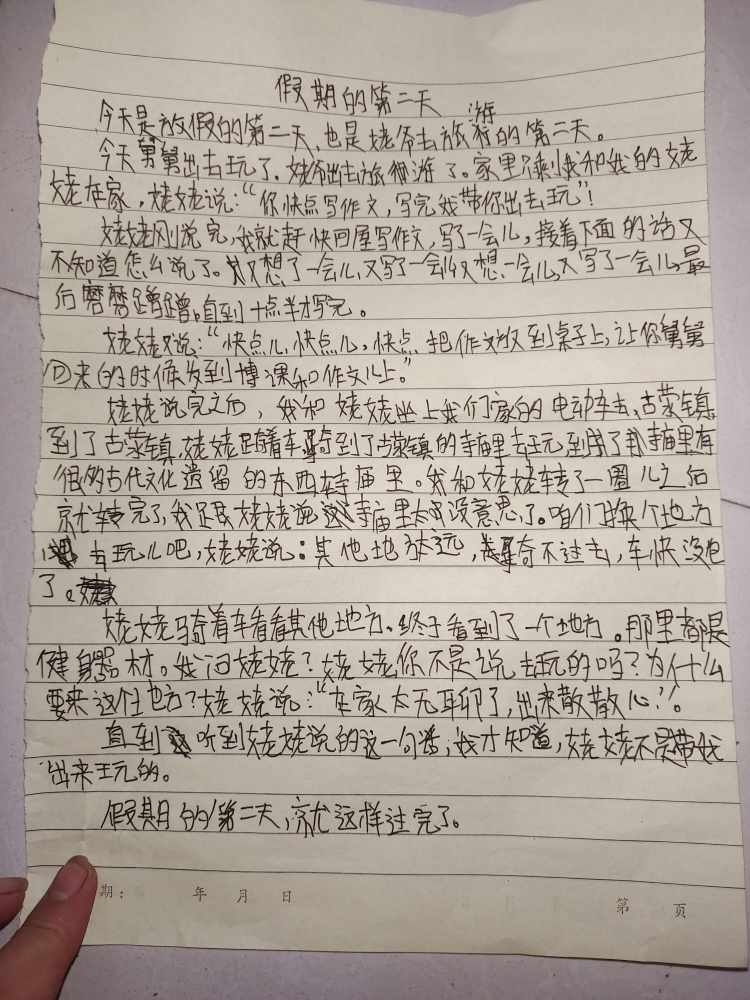 假期的第二天
今天是放假的第二天,也是姥爷去旅游的第二天。
今天舅舅出去玩了。姥爷出去旅游了。家里只剩我和我的姥
姥在家,姥姥说:“你快点写作文,写完我带你出去玩”!
姥姥刚说完,我就赶快回屋写作文,写了一会儿,接着下面的话又
不知道怎么说了。又想了一会儿,又写了一会儿又想一会儿,又写了一会儿,最
后磨磨蹭蹭,直到十点半才写完。
姥姥又说:“快点儿,快点儿,快点,把作文放到桌子上,让你舅舅
回来的时候发到博课和作文儿上。”
姥姥说完之后,我和姥姥坐上我们家的电动车去古蒙镇
到了古蒙镇,姥姥骑着车骑到了古蒙镇的寺庙里去玩到了寺庙里有
很多古代文化遗留的东西转庙里。我和姥姥转了一圈儿之后
就转完了,我跟姥姥说这寺庙里太没意思了。咱们换个地方
去玩儿吧,姥姥说:其他地太远,骑不过去,车快没电
了。
姥姥骑着车看看其他地方、终于看到了一个地方。那里都是
健身器材。我问姥姥?姥姥你不是说去玩的吗?为什么
要来这个地方?姥姥说:“在家太无聊了,出来散散心”。
直到听到姥姥说的这一句话,我才知道,姥姥不是带我
出来玩的。
假期的第二天,就这样过完了。
期: 年 月 日
第 页